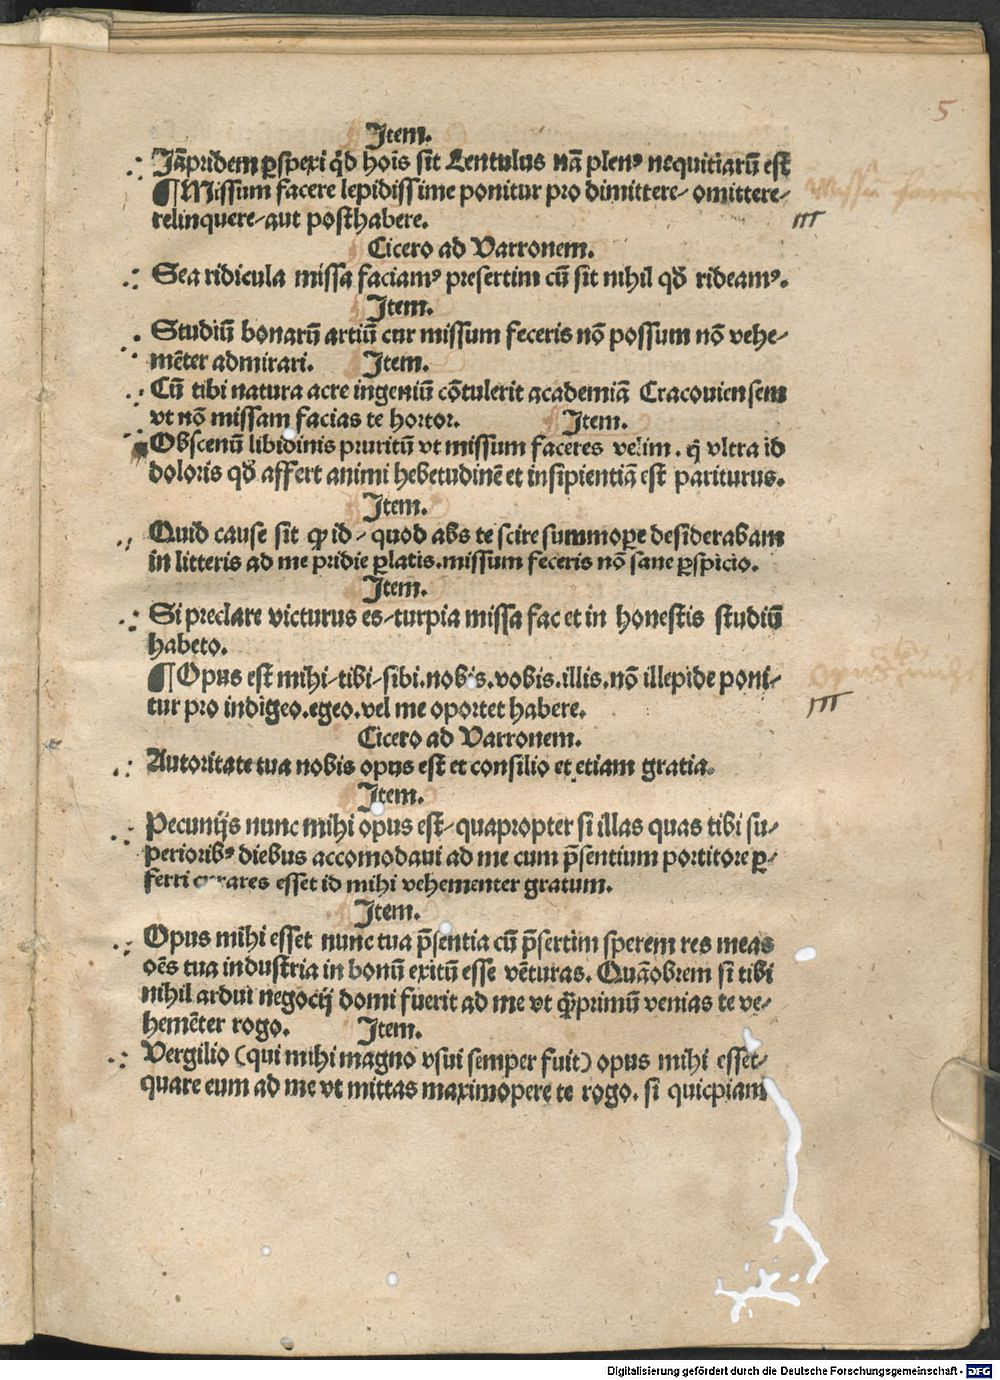 5
Item.
Jãpridem ꝑspexi q̇d hoĩs sit Lentulus nã plenꝰ nequitiarũ est
¶ Missum facere lepidissime ponitur pro dimittere/ omittere/
relinquere/ aut posthabere.
III
Cicero ad Varronem.
Sea ridicula missa faciamꝰ presertim cũ sit nihil qð rideamꝰ.
Item.
Studiũ bonarũ artiũ cur missum feceris nõ possum nõ vehe/
mẽter admirari. Item.
Cũ tibi natura acre ingeniũ cõtulerit academiã Cracouiensem
vt nõ missam facias te hortor. Item.
Obscenũ libidinis pruritũ vt missum faceres velim. q̇ vltra id
doloris qð affert animi hebetudinẽ et insipientiã est pariturus.
Item.
Quid cause sit ꝙ id/ quod abs te scire summoꝑe desiderabam
in litteris ad me pridie ꝑlatis.missum feceris nõ sane ꝑspicio.
Item.
Si preclare victurus es/ turpia missa fac et in honestis studiũ
habeto.
¶ Opus est mihi/ tibi/ sibi.nobis.vobis.illis.nõ illepide poni/
tur pro indigeo.egeo.vel me oportet habere.
III
Cicero ad Varronem.
Autoritate tua nobis opus est et consilio et etiam gratia.
Item.
Pecunijs nunc mihi opus est/ quapropter si illas quas tibi su/
perioribꝰ diebus accomodaui ad me cum p̃sentium portitore ꝑ/
ferri curares esset id mihi vehementer gratum.
Item.
Opus mihi esset nunc tua p̃sentia cũ p̃sertim sperem res meas
oẽs tua industria in bonũ exitũ esse vẽturas. Quãobrem si tibi
nihil ardui negocij domi fuerit ad me vt q̃primũ venias te ve/
hemẽter rogo. Item.
Vergilio (qui mihi magno vsui semper fuit) opus mihi esset/
quare eum ad me vt mittas maximopere te rogo. si quicpiam
Digitalisierung gefördert durch die Deutsche Forschungsgemeinschaft - DFG